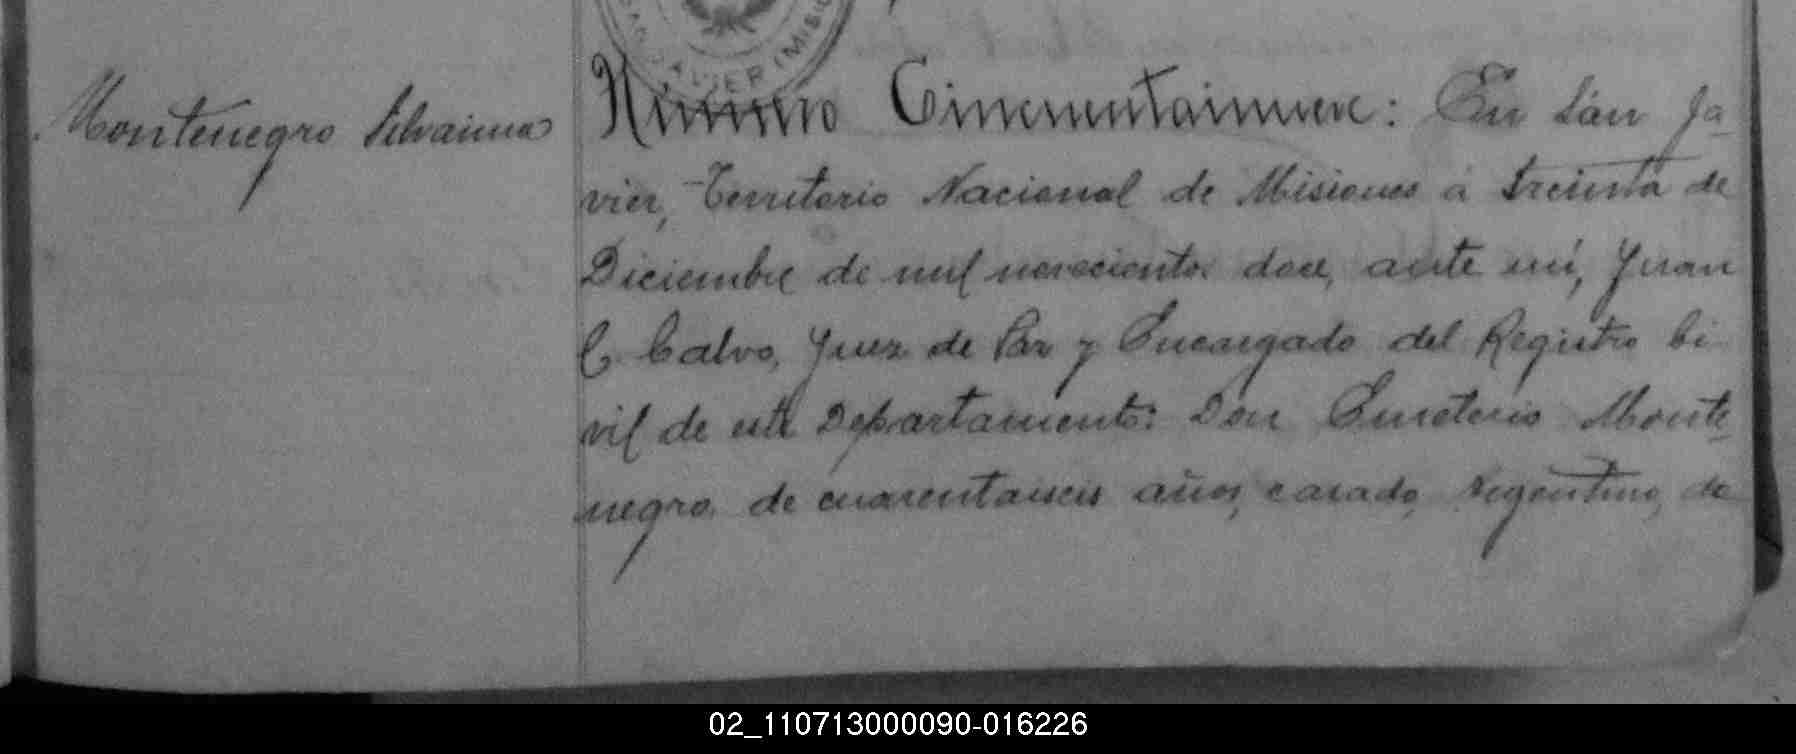 SAN JAVIER (MISIO
Montenegro Silvaina
Número Cincuentainueve: En San Ja-
vier, Territorio Nacional de Misiones á treinta de
Diciembre de mil novecientos doce, ante mí, Juan
C. Calvo, Juez de Paz y Encargado del Registro Ci-
vil de este Departamento: Don Emeterio Monte-
negro, de cuarentaiseis años, casado, Argentino, do
02_110713000090-016226